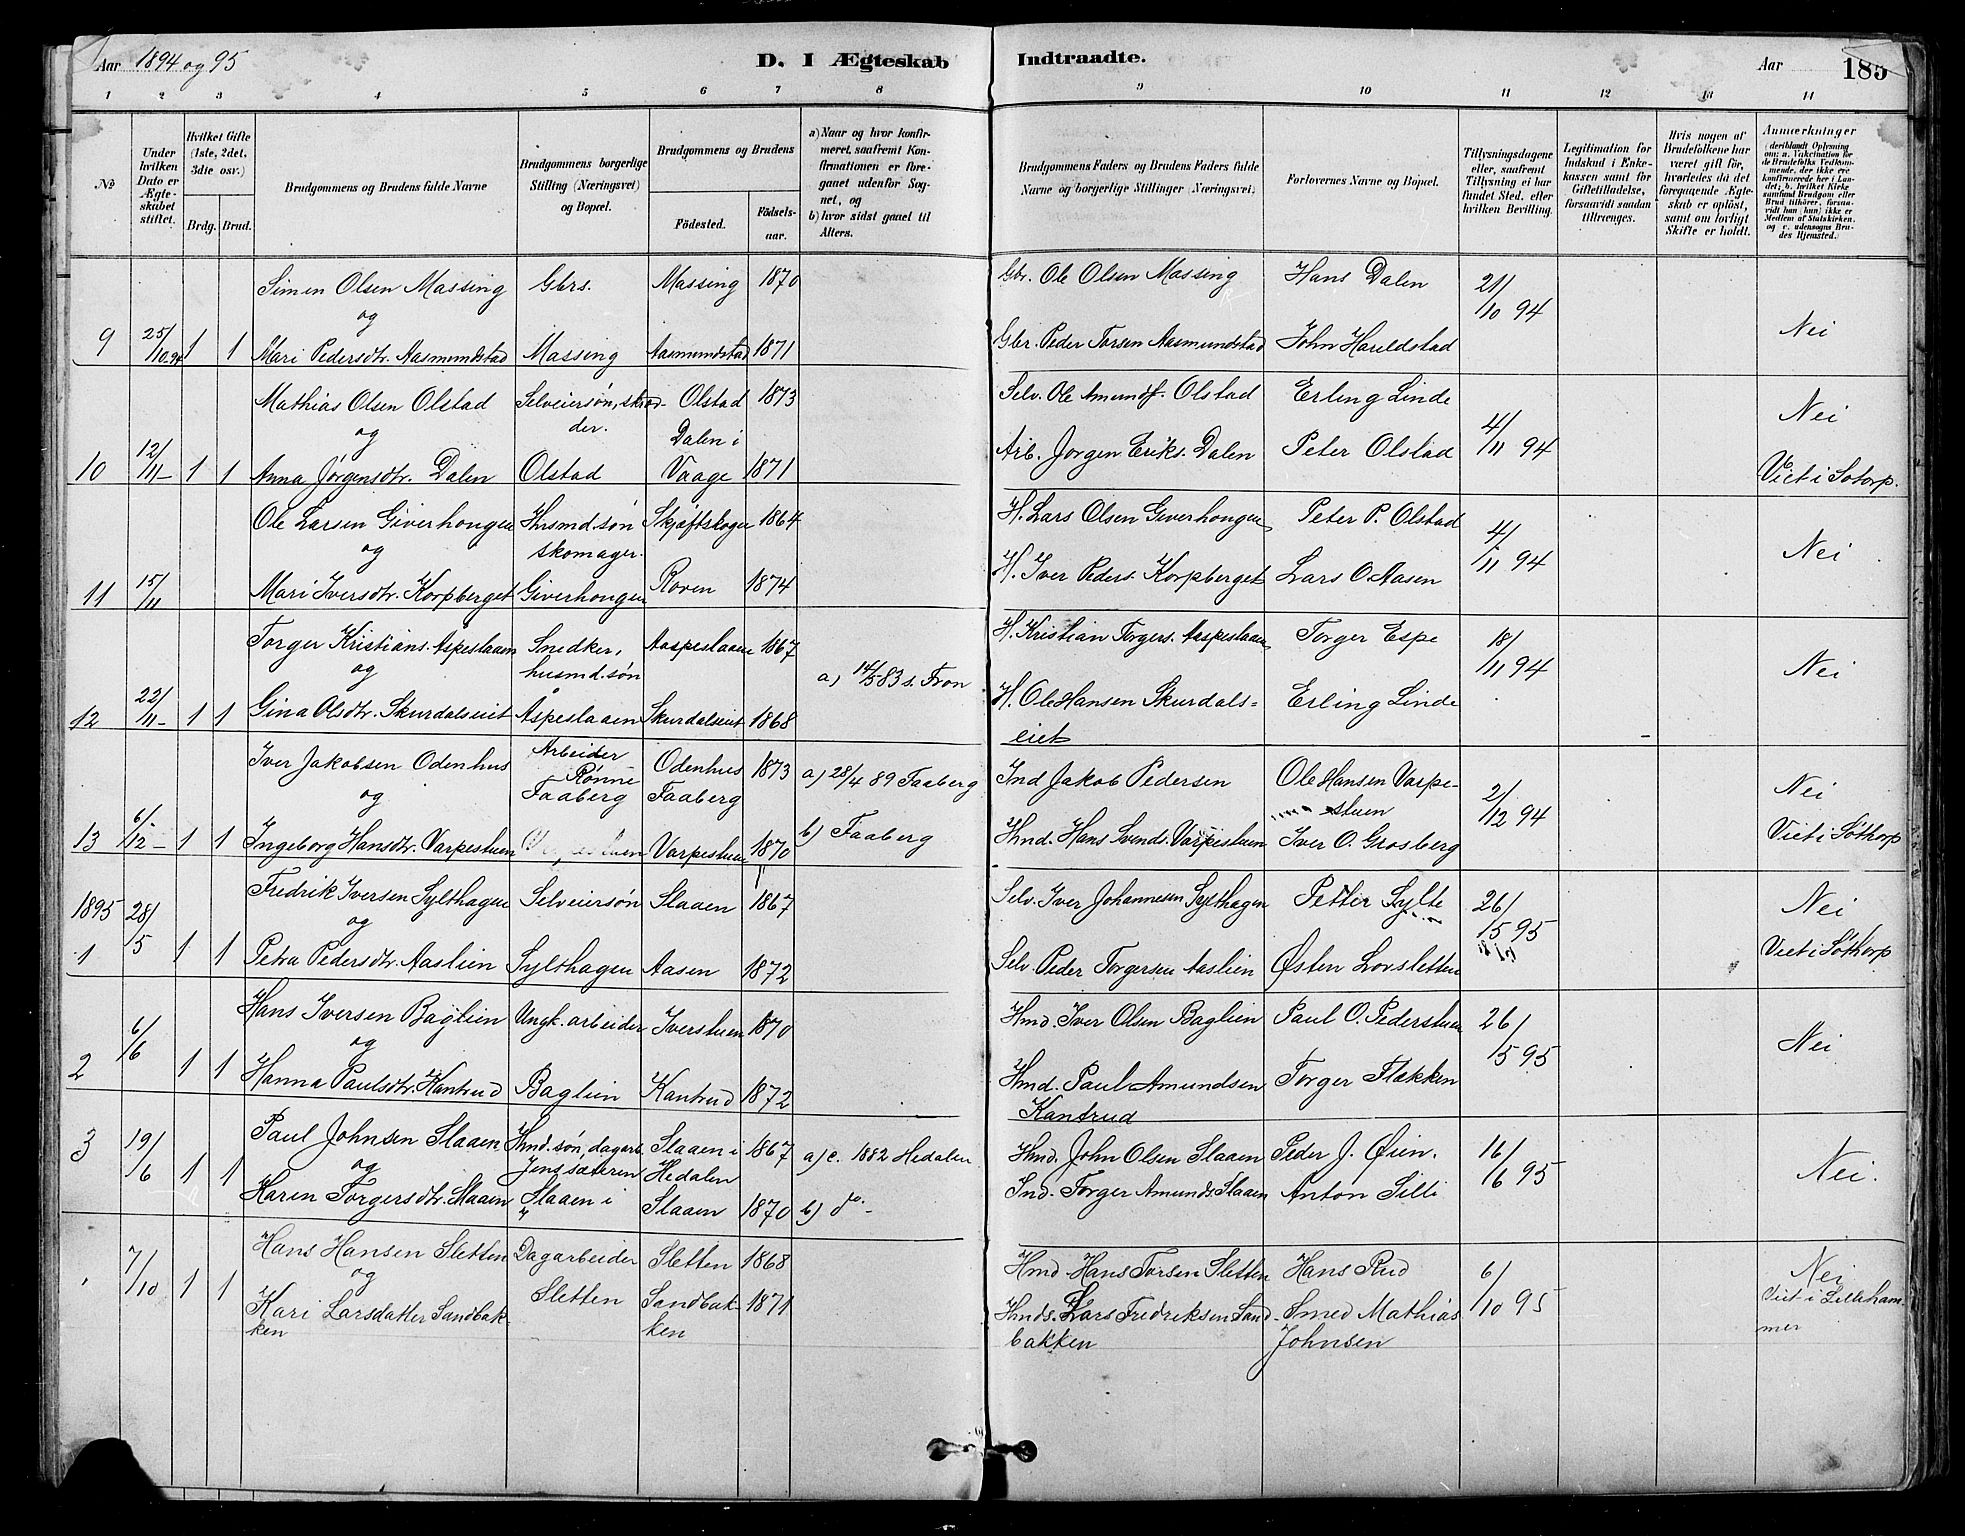 Aar 1894 og 95
D. I Ægteskab
Indtraadte.
Aar
185
1 2 3 4 5 6 7 8 9 10 11 12 13 14
No
Under hvilken Dato er Ægteskabet stiftet.
Hvilket Gifte (1ste, 2det, 3die osv.)
Brdg. Brud.
Brudgommens og Brudens fulde Navne
Brudgommens borgerlige Stilling (Næringsvei) og Bopæl.
Brudgommens og Brudens
Fødested.
Fødselsaar.
a) Naar og hvor konfirmeret, saafremt Konfirmationen er foregaaet udenfor Sognet, og
b) hvor sidst gaaet til Alters.
Brudgommens Faders og Brudens Faders fulde Navne og borgerlige Stillinger (Næringsvei).
Forlovernes Navne og Bopæl.
Tillysningsdagene eller, saafremt Tillysning ei har fundet Sted, efter hvilken Bevilling.
Legitimation for Indskud i Enkekassen samt for Giftetilladelse, forsaavidt saadan tiltrænges.
Hvis nogen af Brudefolkene har været gift før, hvorledes da det foregaaende Ægteskab er opløst, samt om lovligt Skifte er holdt.
Anmærkninger (deriblandt Oplysning om: a. Vakcination for de Brudefolks Vedkommende, der ikke ere konfirmerede her i Landet; b. hvilket Kirkesamfund Brudgom eller Brud tilhører, forsaavidt han (hun) ikke er Medlem af Statskirken, og c. udensogns Brudes Hjemsted.)
Simen Olsen Massing Gbrs. Massing 1870 Gbr. Ole Olsen Massing Hans Dalen 21/10 94
og
9 25/10.94 1 1 Mari Pedersdtr. Aasmundstad Massing Aasmundstad 1871 Gbr. Peder Torsen Aasmundstad John Harildstad Nei
Mathias Olsen Olstad Selveiersøn, skræd- Olstad 1873 Selv. Ole Amundf. Olstad Erling Linde Nei
og der. Dalen i 4/11 94
10 12/11 - 1 1 Anna Jørgensdtr. Dalen Olstad Vaage 1871 Arb. Jørgen Eriks. Dalen Peter Olstad Viet i Sotorp.
Ole Larsen Giverhongen Husmd. søn Skjæftskogen 1864 H. Lars Olsen Giverhongen Peter P. Olstad 4/11 94 Nei
og skomager.
11 15/11 Mari Iversdtr. Korpberget Giverhongen Roven 1874 H. Iver Peders. Korpberget Lars O. Aasen
Torger Kristians. Aspeslaaen Snedker, Aaspeslaaen 1867 H. Kristian Torgers. Aaspeslaaen Torger Espe 18/11 94
og husmd. søn a) 14/5 83 s. Fron Nei
12 22/11 - 1 1 Gina Olsdtr. Skurdalseiet Aspeslaaen Skurdalseiet 1868 H. Ole Hansen Skurdals= Erling Linde
eiet
Iver Jakobsen Odenhus Arbeider Odenhus 1873 a) 28/4 89 Faaberg Ind Jakob Pedersen Ole Hansen Varpe- Nei
og Rønne Faaberg Faaberg stuen 2/12 94
13 6/12 - 1 1 Ingeborg Hansdtr. Varpestuen Varpestuen 1870 b) Faaberg Hmd. Hans Svends. Varpestuen Iver O. Grosberg Viet i Søthorp
1895 28/5 Fredrik Iversen Sylthagen Selveiersøn Slaaen 1867 Selv. Iver Johannesen Sylthagen Petter Sylte 26/5 95 Nei
og
1 1 1 Petra Pedersdtr. Aaslien Sylthagen Aasen 1872 Selv. Peder Torgersen Aaslien Østen Lorsletten Viet i Søthorp
Hans Iversen Baglien Ungk. arbeider Iverstuen 1870 Hmd. Iver Olsen Baglien Paul O. Pederstuen 26/5 95
6/6 og Nei
2 1 1 Hanna Paulsdtr. Kantrud Baglien Kantrud 1872 Hmd. Paul Amundsen Torger Flakken
Kantrud
3 19/6 1 1 Paul Johnsen Slaaen Hmd. søn, dagarb. Slaaen i 1867 a) c. 1882 Hedalen Hmd. John Olsen Slaaen Peder J. Øien. 16/6 95
og Jenssæteren Hedalen Nei.
Karen Torgersdtr. Slaaen Slaaen i Slaaen 1870 b) do - Ind. Torger Amunds. Slaaen Anton Silli
7/10 1 1 Hans Hansen Sletten Dagarbeider Sletten 1868 Hmd Hans Torsen Sletten Hans Rud 6/10 95 Nei
og Sletten Viet i Lilleham
Kari Larsdatter Sandbak- Sandbak- 1871 Hmds. Lars Fredriksen Sand- Smed Mathias mer
ken ken bakken Johnsen